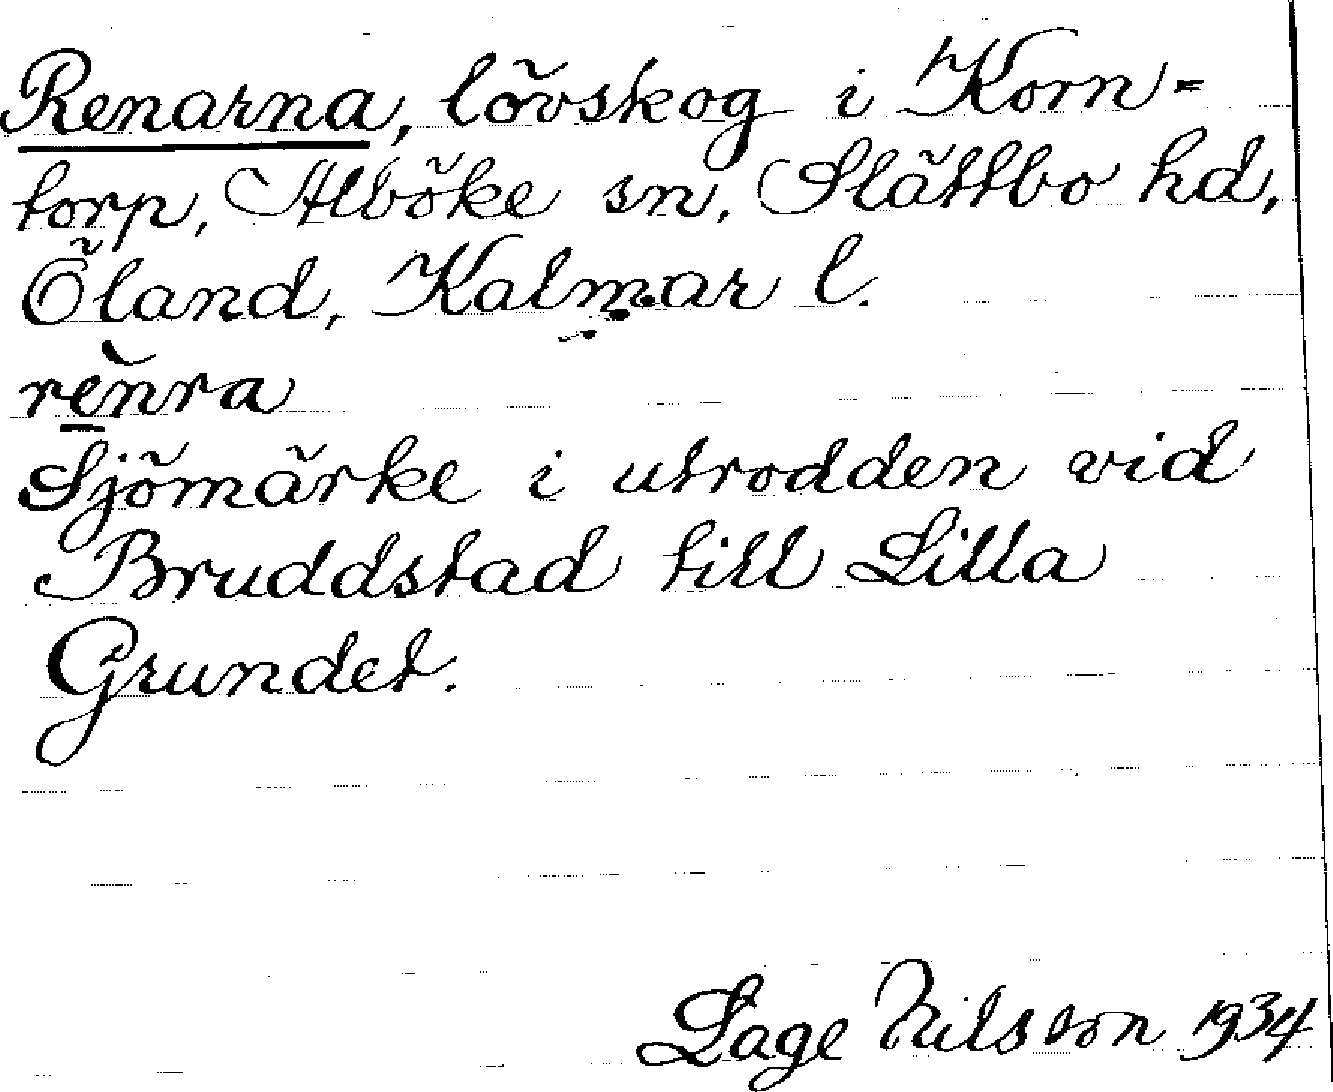 Renarna, lövskog i Korn-
torp, Alböke sn, Slättbo hd,
Öland, Kalmar l.
renra
Sjömärke i utrodden vid
Bruddstad till Lilla
Grundet.
Lage Nilsson 1934